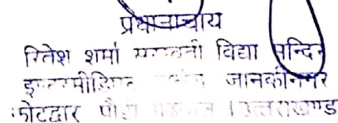 प्रधानाचार्य
रितेश शर्मा सरस्वती विद्या मन्दिर
इण्टरमीडिएट जानकीनगर
कोटद्वार पौड़ी उत्तराखण्ड